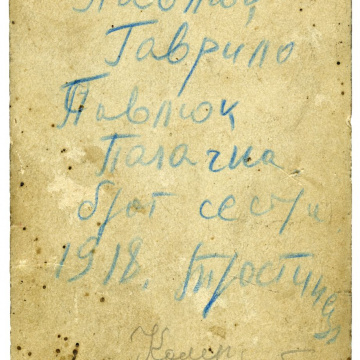 Гаврило
Павлюк
Палачна
брат сестри
1918. Тростинець